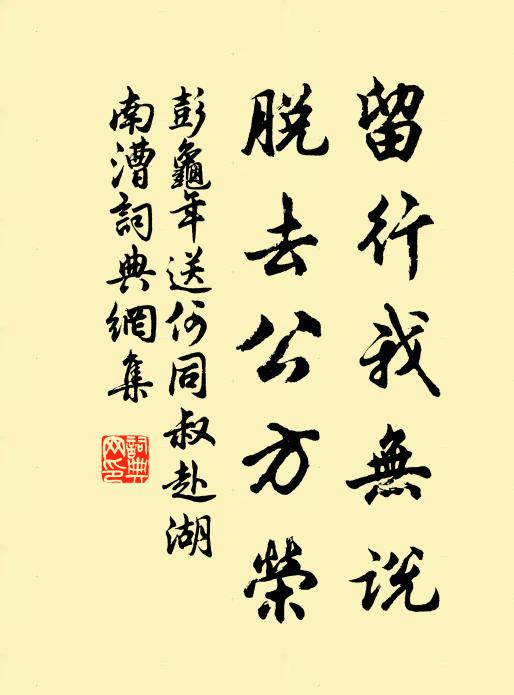 留行我無說
脫去公方榮
彭龜年送何同叔赴湖
南漕詞典網集
詞典
网印